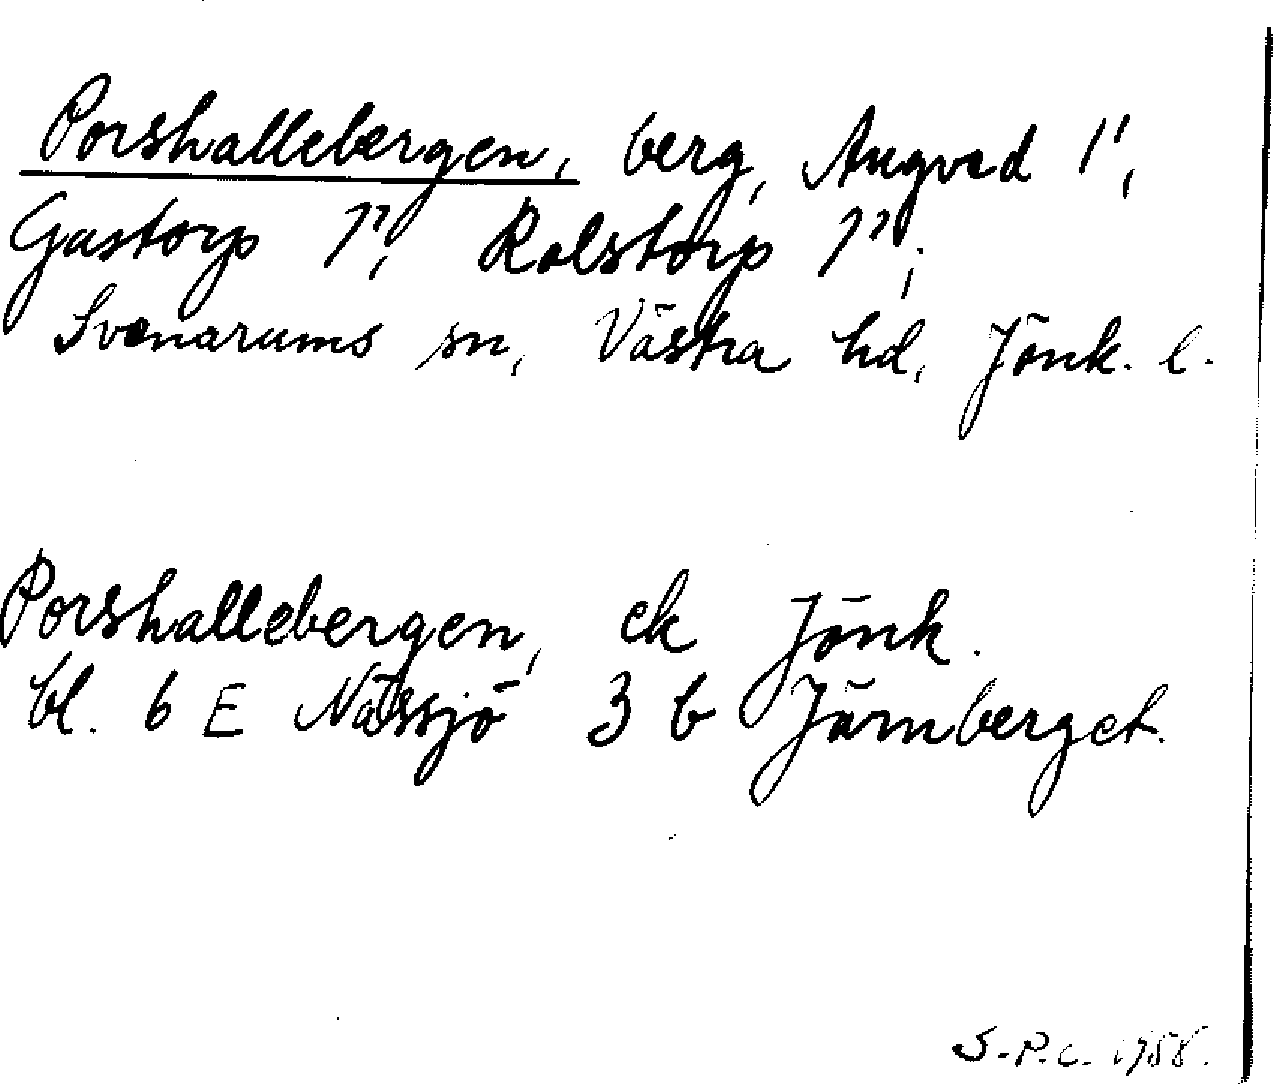 Porshallebergen, berg, Angvad 1",
Gastorp 1", Rolstorp 1",
Svenarums sn, Västra hd, Jönk. l.
Porshallebergen, ek Jönk.
bl. 6 E Nässjö 3 b Järnberget.
S-P.C. 1958.